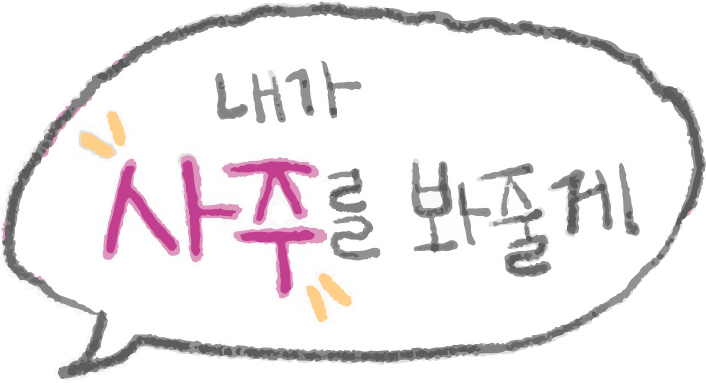 내가
사주를 봐줄게